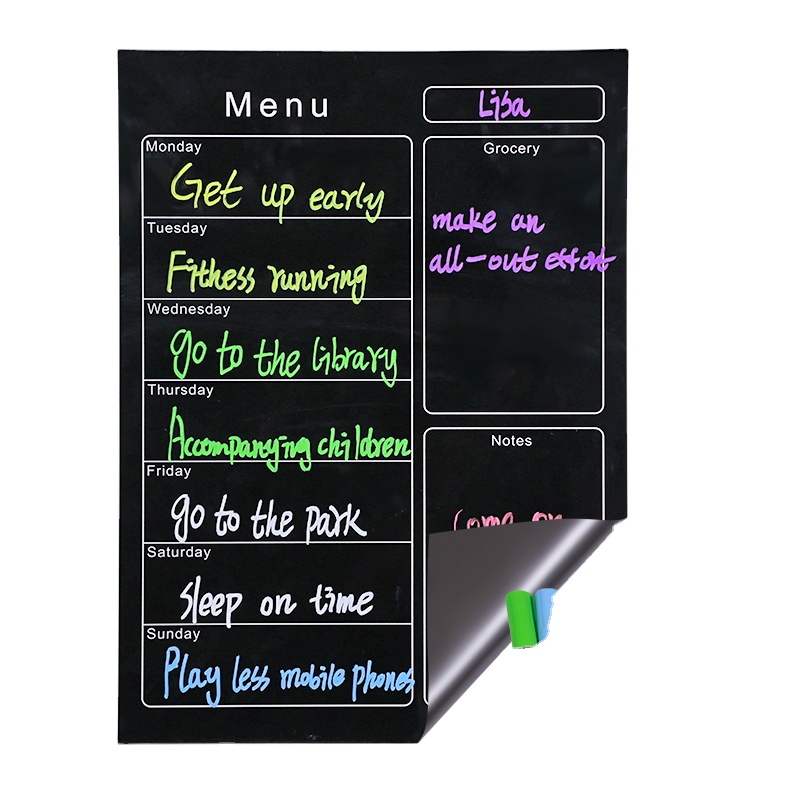 Menu
Lisa
Monday
Get up early
Tuesday
Fithess running
Wednesday
go to the library
Thursday
Accompanying children
Friday
go to the park
Saturday
sleep on time
Sunday
Play less mobile phones
Grocery
make an
all-out effort
Notes
Come on